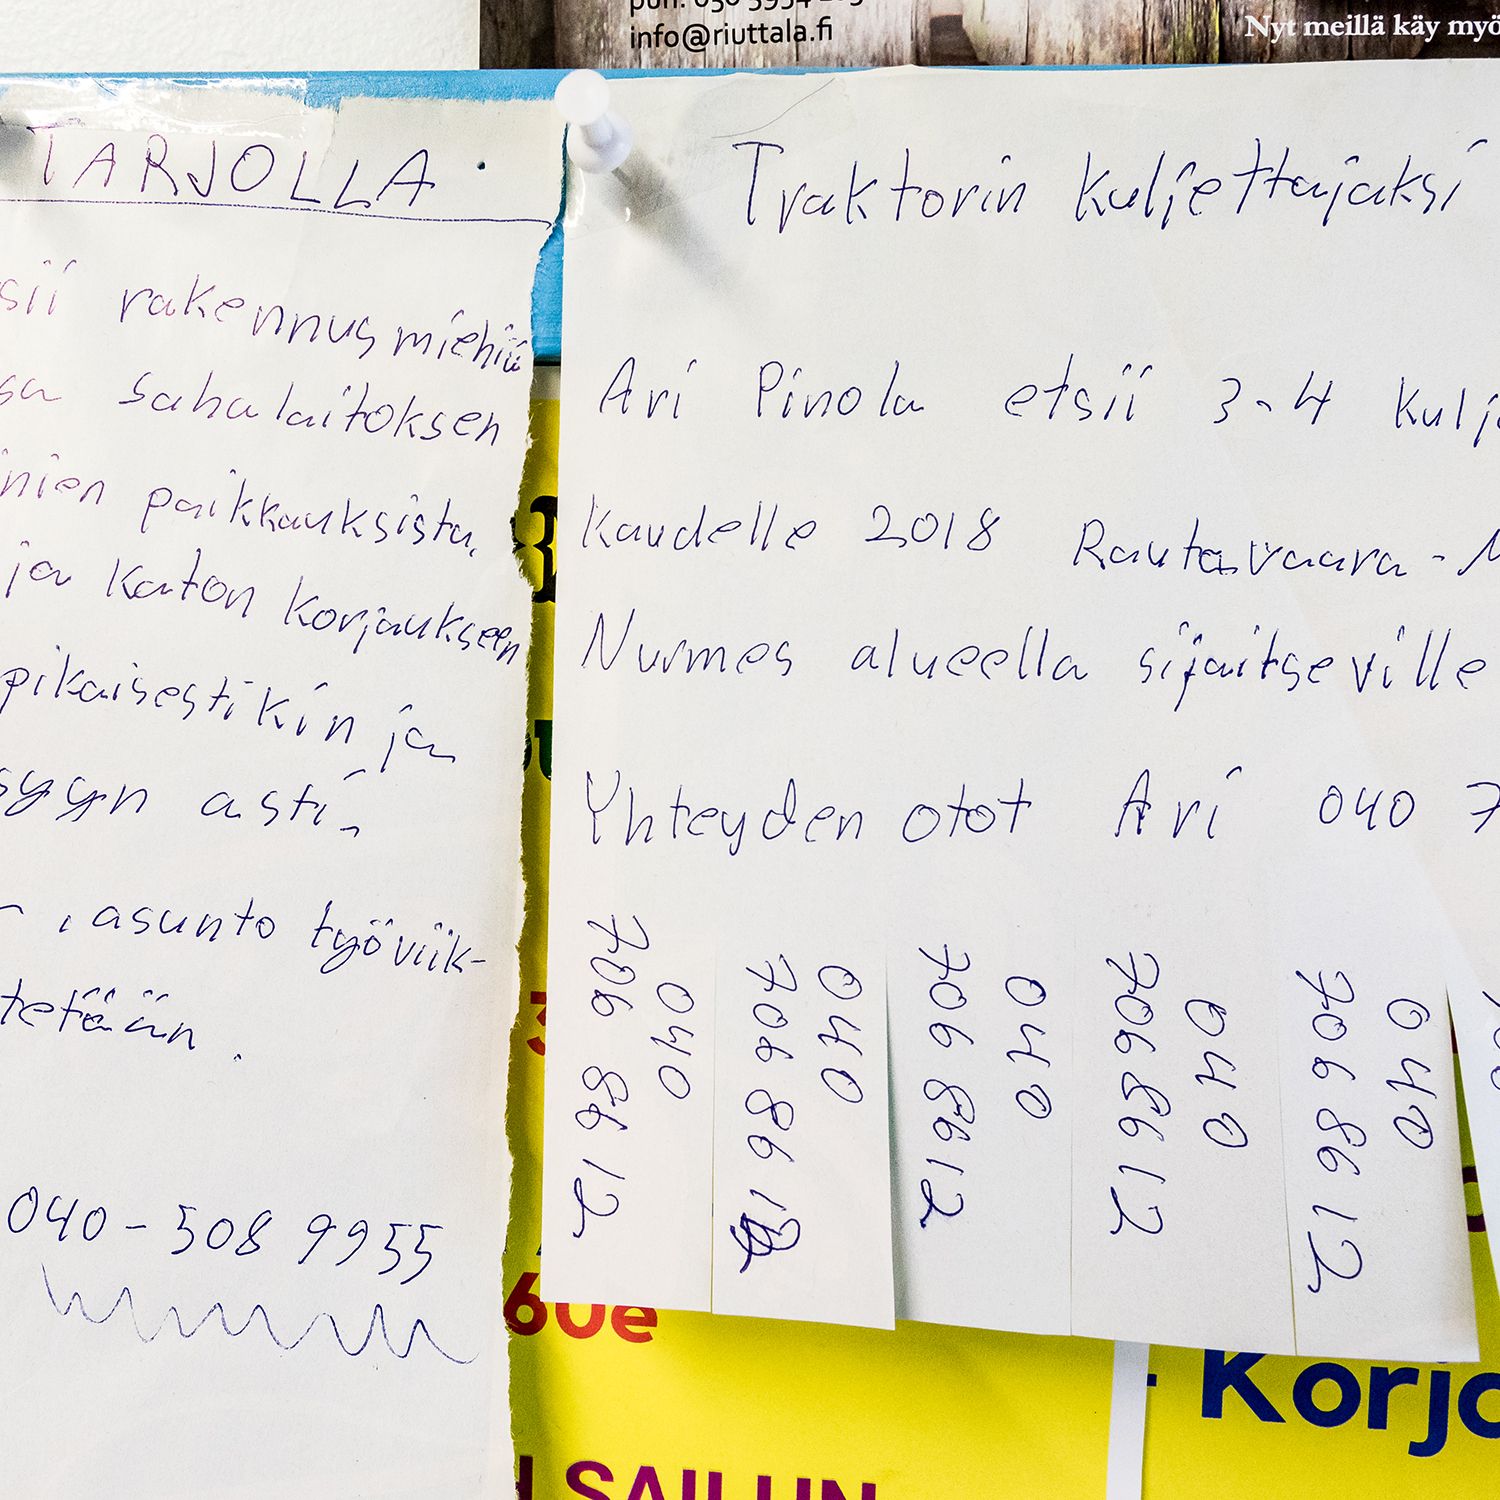 info@riuttala.fi
Nyt meillä käy myö
TARJOLLA.
sii rakennusmiehiä
sa sahalaitoksen
nien paikkauksista,
ja katon korjaukseen
pikaisestikin ja
syyn asti.
, asunto työviik-
tetään.
040-508 9955
Traktorin kuljettajaksi
Ari Pinola etsii 3-4 kulj
Kaudelle 2018 Rautavaara-
Nurmes alueella sijaitseville
Yhteyden otot Ari 040 7
040
706 86 12
040
706 86 12
040
706 86 12
040
706 86 12
040
706 86 12
60e
SAILUN
Korjo